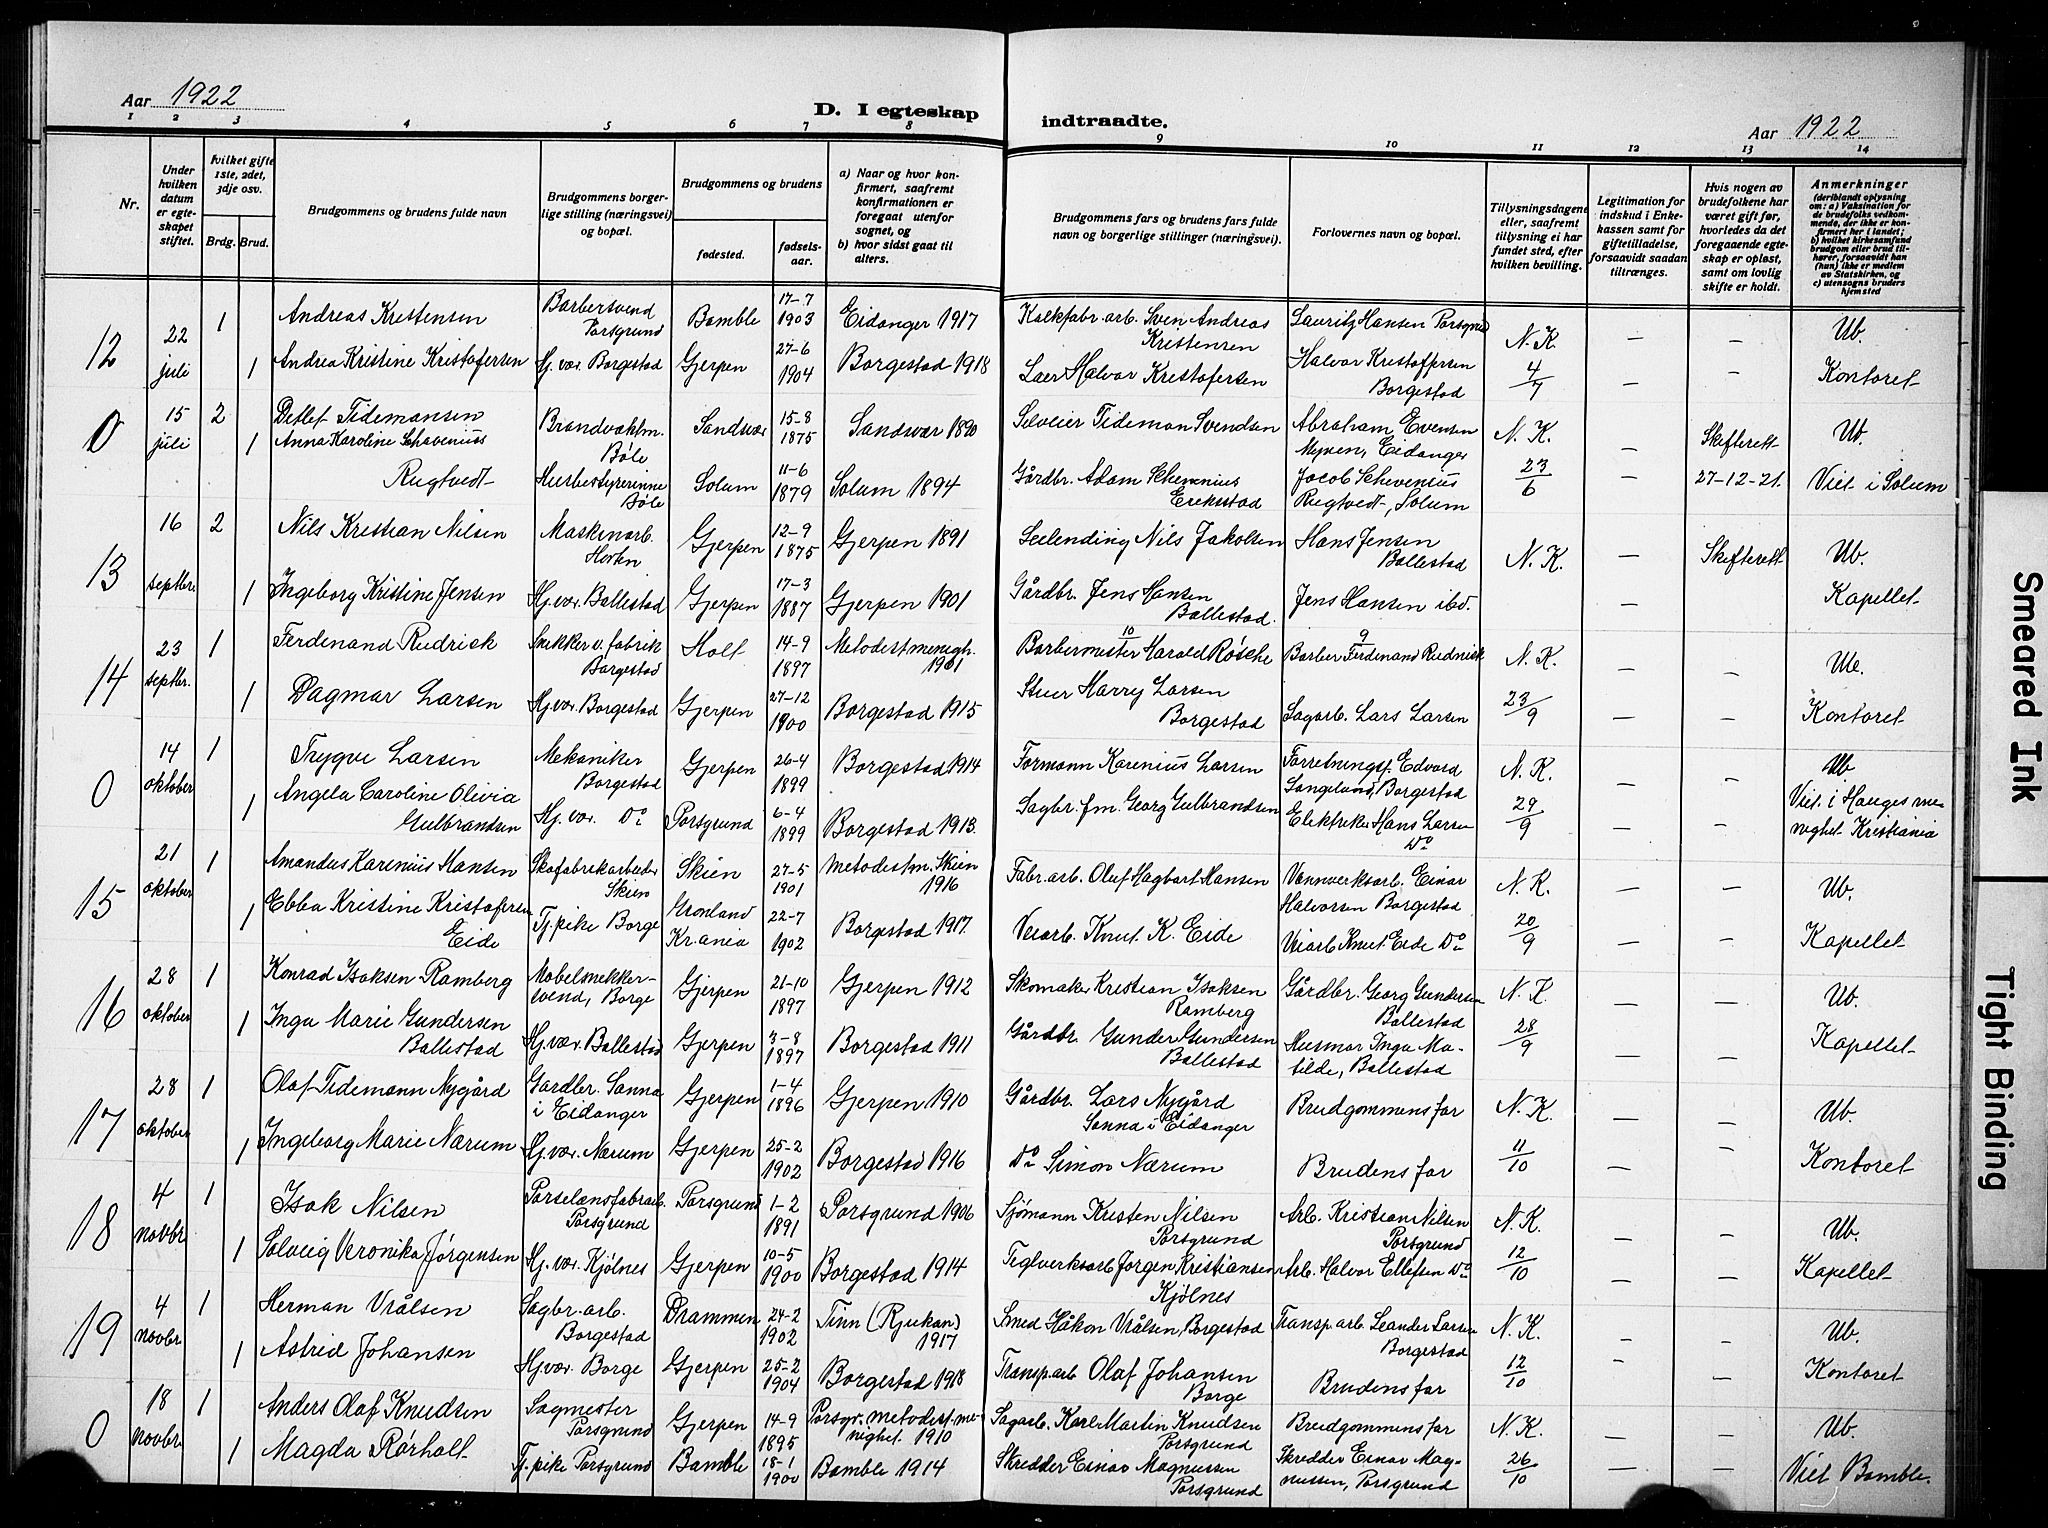 Aar 1922
D. I egteskap
indtraadte.
Aar 1922
1 2 3 4 5 6 7 8 9 10 11 12 13 14
Nr.
Under hvilken datum er egteskapet stiftet.
hvilket gifte 1ste, 2det, 3dje osv.
Brdg. Brud.
Brudgommens og brudens fulde navn
Brudgommens borgerlige stilling (næringsvei) og bopæl.
Brudgommens og brudens
fødested.
fødselsaar.
a) Naar og hvor konfirmert, saafremt konfirmationen er foregaat utenfor sognet, og
b) hvor sidst gaat til alters.
Brudgommens fars og brudens fars fulde navn og borgerlige stillinger (næringsvei).
Forlovernes navn og bopæl.
Tillysningsdagene eller, saafremt tillysning ei har fundet sted, efter hvilken bevilling.
Legitimation for indskud i Enkekassen samt for giftetilladelse, forsaavidt saadan tiltrænges.
Hvis nogen av brudefolkene har været gift før, hvorledes da det foregaaende egteskap er opløst, samt om lovlig skifte er holdt.
Anmerkninger (deriblandt oplysning om: a) Vaksination for de brudefolks vedkommende, der ikke er konfirmert her i landet; b) hvilket kirkesamfund brudgom eller brud tilhører, forsaavidt han (hun) ikke er medlem av Statskirken, og c) utensogns bruders hjemsted
12 22 juli 1 Andreas Kristensen Barbersvend Porsgrund Bamble 17-7 1903 Eidanger 1917 Kalkfabr.arb. Sven Andreas Kristensen Lauritz Hansen Porsgrund N.K. — — Ub.
1 Andrea Kristine Kristofersen Hj.vær. Borgestad Gjerpen 27-6 1904 Borgestad 1918 Halvor Kristofersen Halvor Kristoffersen Borgestad 4/7 — — Kontoret
0 15 juli 2 Detlef Tidemansen Brandvaktm. Bøle Sandvær 15-8 1875 Sandvær 1890 Tideman Svendsen Abraham Evensen Myren, Eidanger N.K. — Skifterett Ub.
1 Anna Karoline Schavenius Rugtvedt Husbestyrerinne Bøle Solum 11-6 1879 Solum 1894 Gårdbr. Adam Eriksstad Jacob Schvenius Rugtvedt, Solum 23/6 — 27-12-21. Viet i Solum
13 16 septbr. 2 Nils Kristian Nilsen Maskinarb. Gjerpen 12-9 1875 Gjerpen 1891 Nils Jakobsen Hans Jensen Ballestad N.K. — Skifterett Ub.
1 Ingeborg Kristine Jensen Hj.vær. Ballestad Gjerpen 17-3 1887 Gjerpen 1901 Gårdbr. Jens Hansen Ballestad. Jens Hansen ibd. — Kapellet
14 23 septbr. 1 Ferdinand Rudnisk Snekker v. fabrik Borgestad Holt 14-9 1897 Metodistmenigh. 1901 Barbermester Harald Røsche Barber Ferdinand Rudnisk N.K. — — Ub.
1 Dagmar Larsen Hj.vær. Borgestad Gjerpen 27-12 1900 Borgestad 1915 Stuer Harry Larsen Borgestad Sagarb. Lars Larsen 23/9 — — Kontoret
0 14 oktober 1 Trygve Larsen Mekaniker Borgestad Gjerpen 26-4 1899 Borgestad 1914 Formann Karenius Larsen Forretningsf. Edvard Langelund, Borgestad N.K. — — Ub
1 Angela Caroline Olivia Gulbrandsen Hj.vær. Do Porsgrund 6-4 1899 Borgestad 1913. Sagbr.fm. Georg Gulbrandsen Elektriker Hans Larsen Do 29/9 — — Viet i Hauges menighet Kristiania
15 21 oktober 1 Amandus Karenius Hansen Skofabrikarbeider Skien Skien 27-5 1901 Metodistm. Skien 1916 Fabr.arb. Oluf Hagbart Hansen Vannverksarb. Einar Halvorsen Borgestad N.K. — — Ub.
1 Ebba Kristine Kristofersen Eide Tj.pike Borge Grønland Kr.ania 22-7 1902 Borgestad 1917. Veiarb. Knut K. Eide Veiarb Knut Eide Do 20/9 — — Kapellet
16 28 oktober 1 Konrad Isaksen Ramberg Møbelsnekkersvend, Borge Gjerpen 21-10 1897 Gjerpen 1912 Skomaker Kristian Isaksen Ramberg Gårdbr. Georg Gundersen Ballestad N.K. — — Ub.
1 Inga Marie Gundersen Ballestad Hj.vær. Ballestad Gjerpen 3-8 1897 Borgestad 1911 Gårdbr. Gunder Gundersen Ballestad Husmor Inga Matilde, Ballestad 28/9 — — Kapellet
17 28 oktober 1 Olaf Tidemann Nygård Gardbr. Sanna i Eidanger Gjerpen 1-4 1896 Gjerpen 1910 Gårdbr. Lars Nygård Sanna i Eidanger Brudgommens far N.K. — — Ub.
1 Ingeborg Marie Nærum Hj.vær. Nærum Gjerpen 25-2 1902 Borgestad 1916 Do Simon Nærum Brudens far 11/10 — — Kontoret
18 4 novbr. 1 Isak Nilsen Porselænsfabrarb. Porsgrund Porsgrund 1-2 1891 Porsgrund 1906 Sjømann Kristen Nilsen Porsgrund Arb. Kristian Nilsen Porsgrund N.K. — — Ub.
1 Solveig Veronika Jørgensen Hj.vær. Kjølnes Gjerpen 10-5 1900 Borgestad 1914 Teglverksarb Jørgen Kristiansen Kjølnes Arb. Halvor Ellefsen Do 12/10 — — Kapellet
19 4 novbr 1 Herman Vrålsen Sagbr.arb. Borgestad Drammen 24-2 1902 Tinn (Rjukan) 1917 Smed Håkon Vrålsen, Borgestad Transp.arb Leander Larsen Borgestad N.K. — — Ub.
1 Astrid Johansen Hj.vær. Borge Gjerpen 25-2 1904 Borgestad 1918 Transp.arb Olaf Johansen Borge Brudens far 12/10 — — Kontoret
0 18 novbr. 1 Anders Olaf Knudsen Sagmester Porsgrund Gjerpen 14-9 1895 Porsgr. metodistmenighet. 1910 Sagarb. Karl Martin Knudsen Porsgrund Brudgommens far N.K. — — Ub.
1 Magda Rørholt Tj.pike Porsgrund Bamble 18-1 1900 Bamble 1914 Skredder Einar Magnussen Porsgrund Skredder Einar Magnussen, Porsgrund 26/10 — — Viet Bamble.
Smeared Ink
Tight Binding